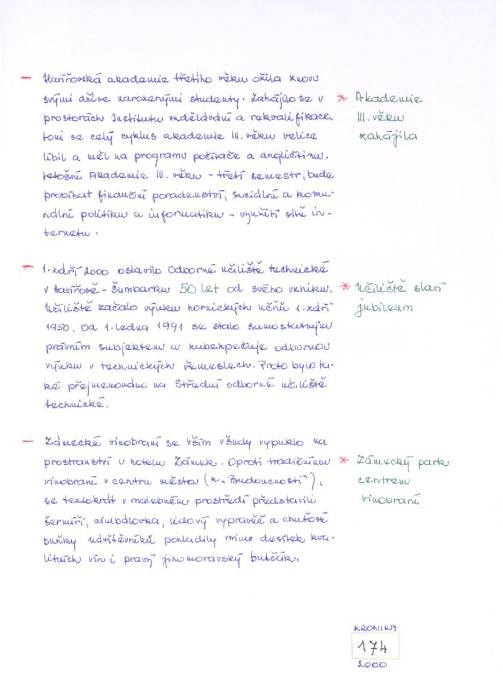 - Havířovská akademie třetího věku ožila znovu
svými dříve narozenými studenty. Zahájilo se v
prostorách Institutu vzdělávání a rekvalifikace.
Loni se celý cyklus akademie III. věku velice
líbil a měl na programu počítače a angličtinu.
Letošní Akademie III. věku - třetí semestr, bude
probírat finanční poradenství, sociální a komu-
nální politiku a informatiku - využití sítě in-
ternetu.
* Akademie
III. věku
zahájila
- 1. září 2000 oslavilo Odborné učiliště technické
v Havířově - Šumbarku 50 let od svého vzniku.
Učiliště začalo výuku hornických učňů 1. září
1950. Od 1. ledna 1991 se stalo samostatným
právním subjektem a zabezpečuje odbornou
výuku v technických řemeslech. Proto bylo ta-
ké přejmenováno na Střední odborné učiliště
technické.
* Učiliště slaví
jubileum
- Zámecké vinobraní se vším všudy vypuklo na
prostranství u hotelu Zámek. Oproti tradičnímu
vinobraní v centru města (u „Budoucnosti"),
se tentokrát v malebném prostředí představili
šermíři, cimbálovka, lidový vypravěč a chuťové
buňky návštěvníků pohladily mimo desítek kva-
litních vín i pravý jihomoravský burčák.
* Zámecký park
centrem
vinobraní
KRONIKA
174
2000